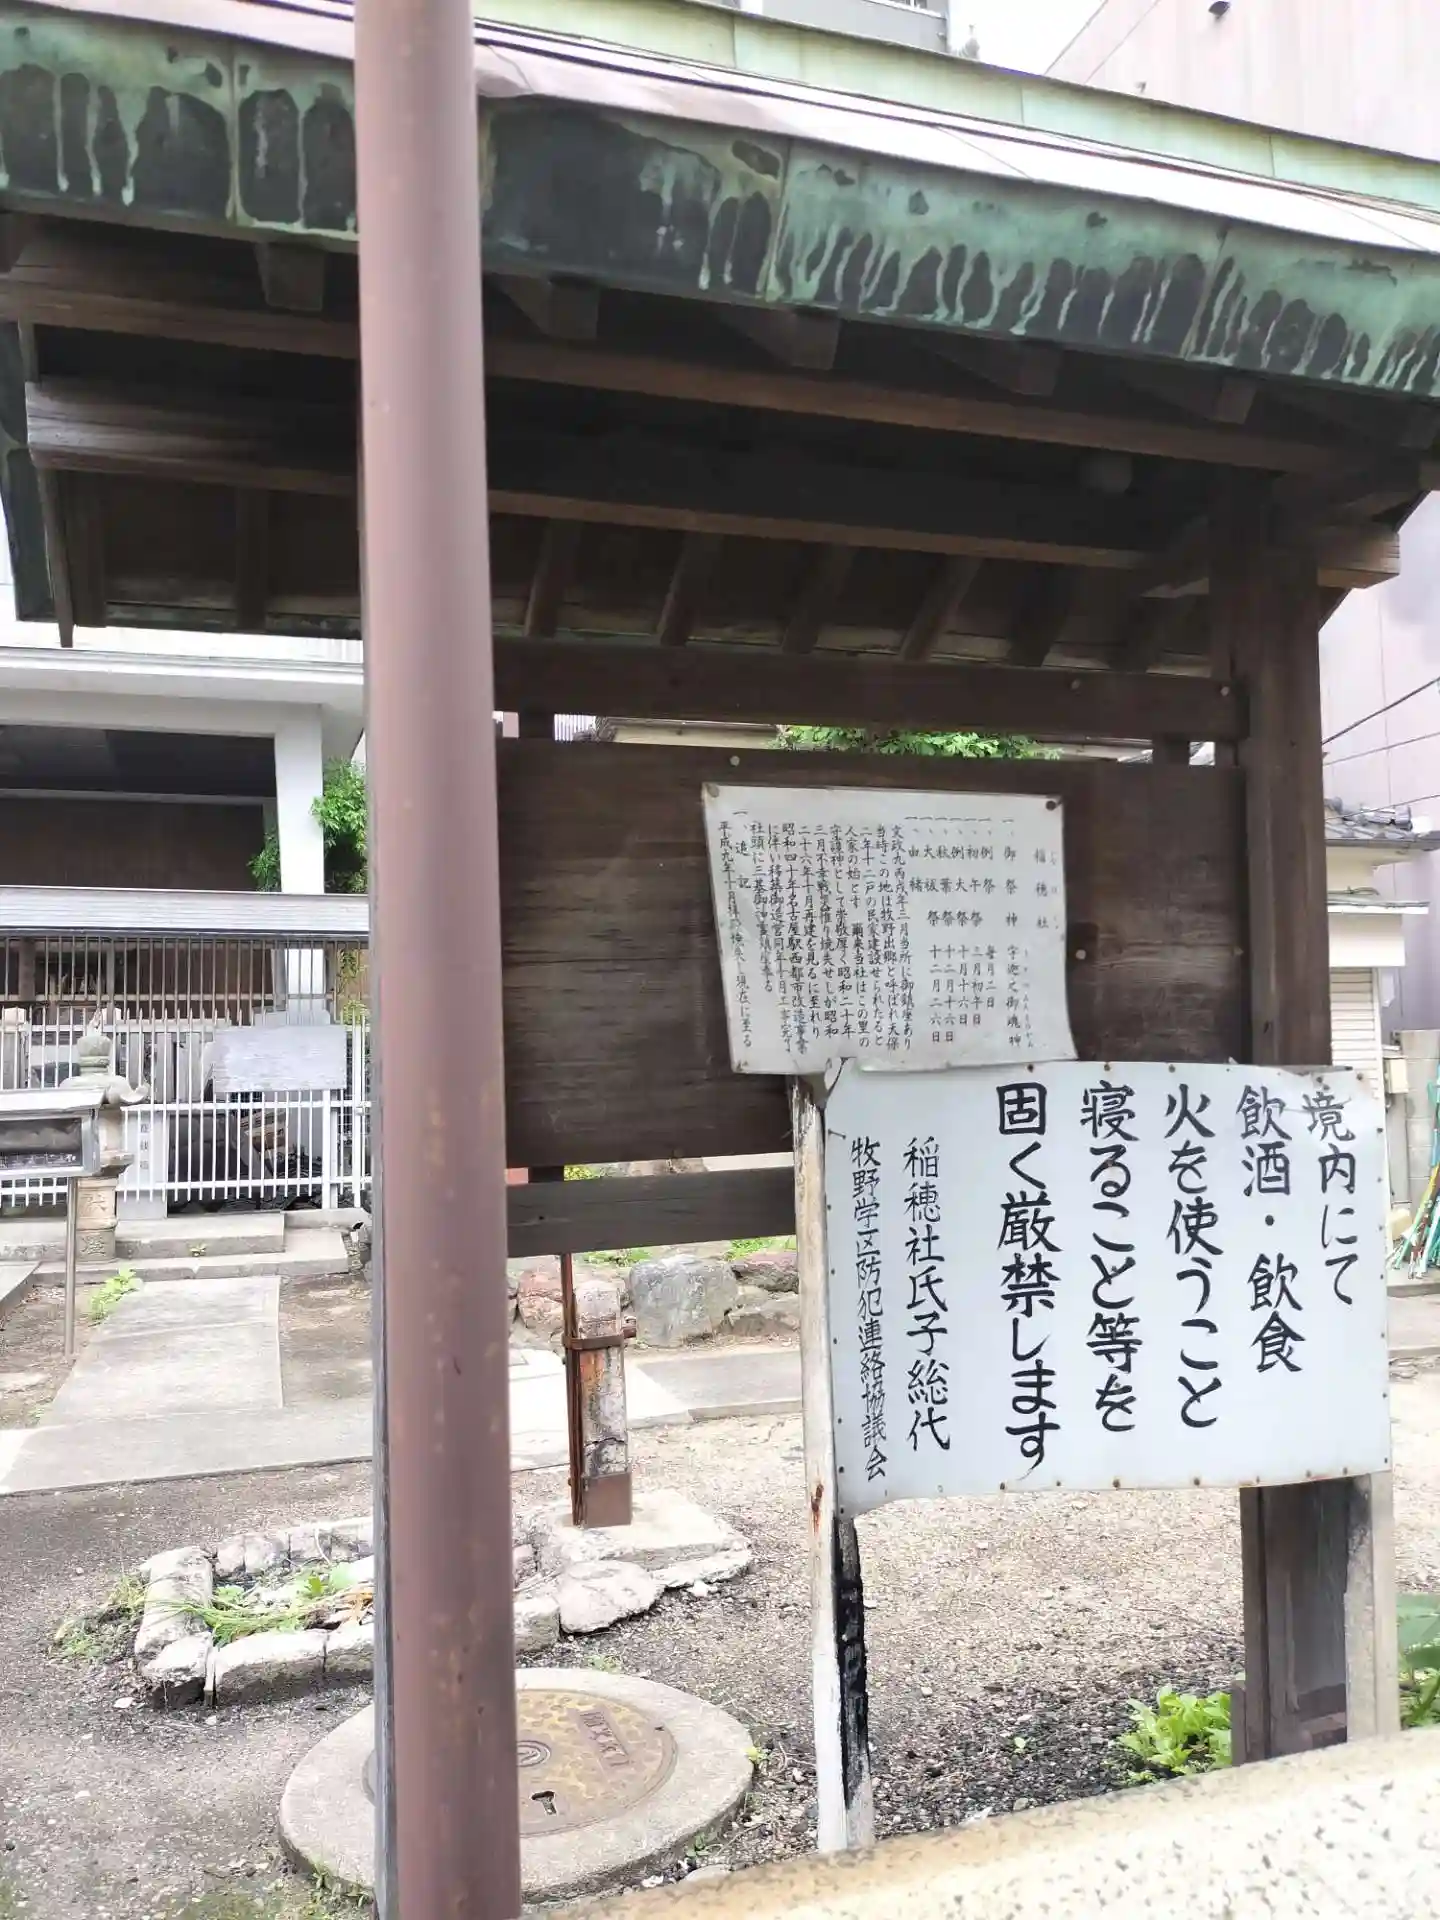 稲穂社
一、御祭神 宇迦之御魂神
一、例祭 毎月二日
一、初午祭 三月初午日
一、例大祭 十月十六日
一、秋葉祭 十二月十六日
一、大祓祭 十二月二六日
一、由緒
文政九丙戌年三月当所に御鎮座あり
当時この地は牧野出郷と呼ばれ天保
二年十二戸の民家建設せられたると
人家の始とす 爾来当社はこの里の
守護神として崇敬厚く昭和二十年
三月不幸戦災に罹り焼失せしが昭和
二十六年十月再建を見るに至れり
昭和四十年名古屋駅西都市改造事業
に伴い移築御造営同年十月工事完了
社頭に三基御神霊鎮座奉る
一、追記
平成九年十月 現在に至る
境内にて
飲酒・飲食
火を使うこと
寝ること等を
固く厳禁します
稲穂社氏子総代
牧野学区防犯連絡協議会